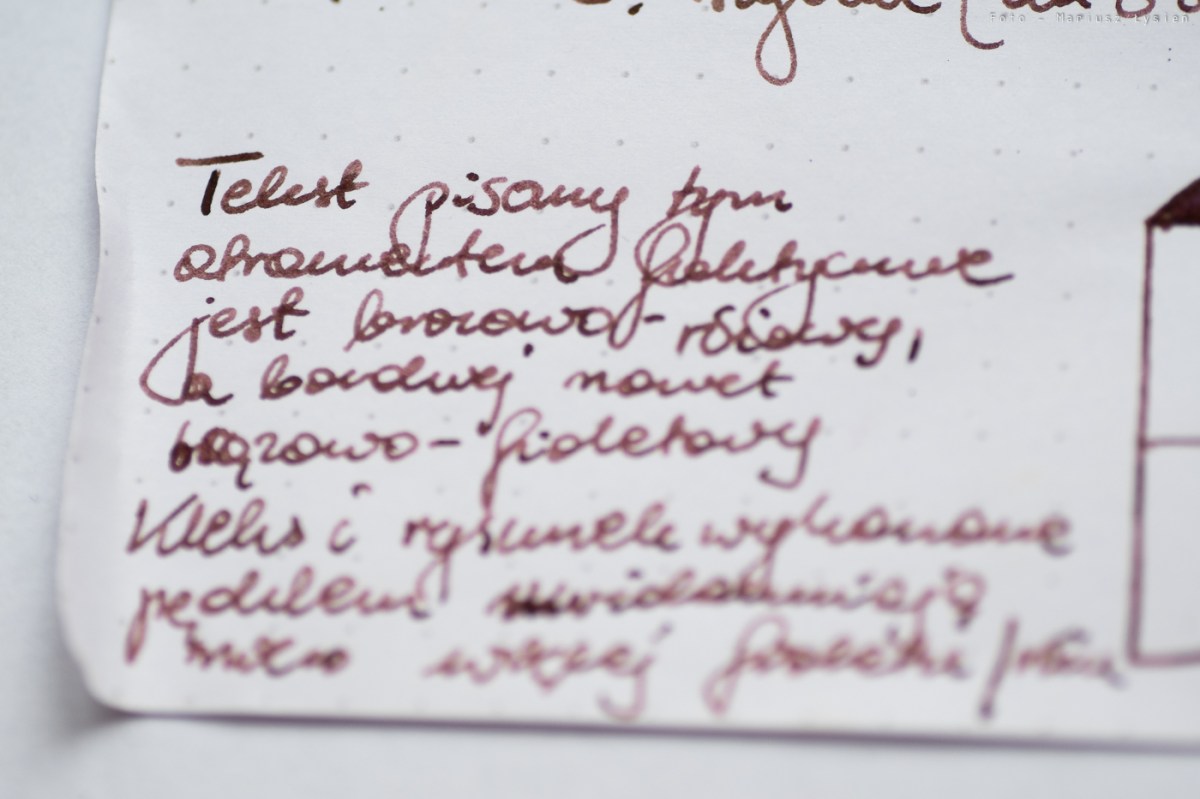 Foto - Mariusz Łysień
Tekst pisany tym
atramentem faktycznie
jest brązowo-różowy,
a bardziej nawet
brązowo-fioletowy
Kleks i rysunek wykonane
pędzlem uwidaczniają
więcej fioletu/różu